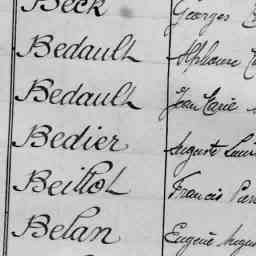 Beck Georges
Bedault Alphonse
Bedault Jean Marie
Bedier Auguste Louis
Beillot Francis
Belan Eugène Auguste